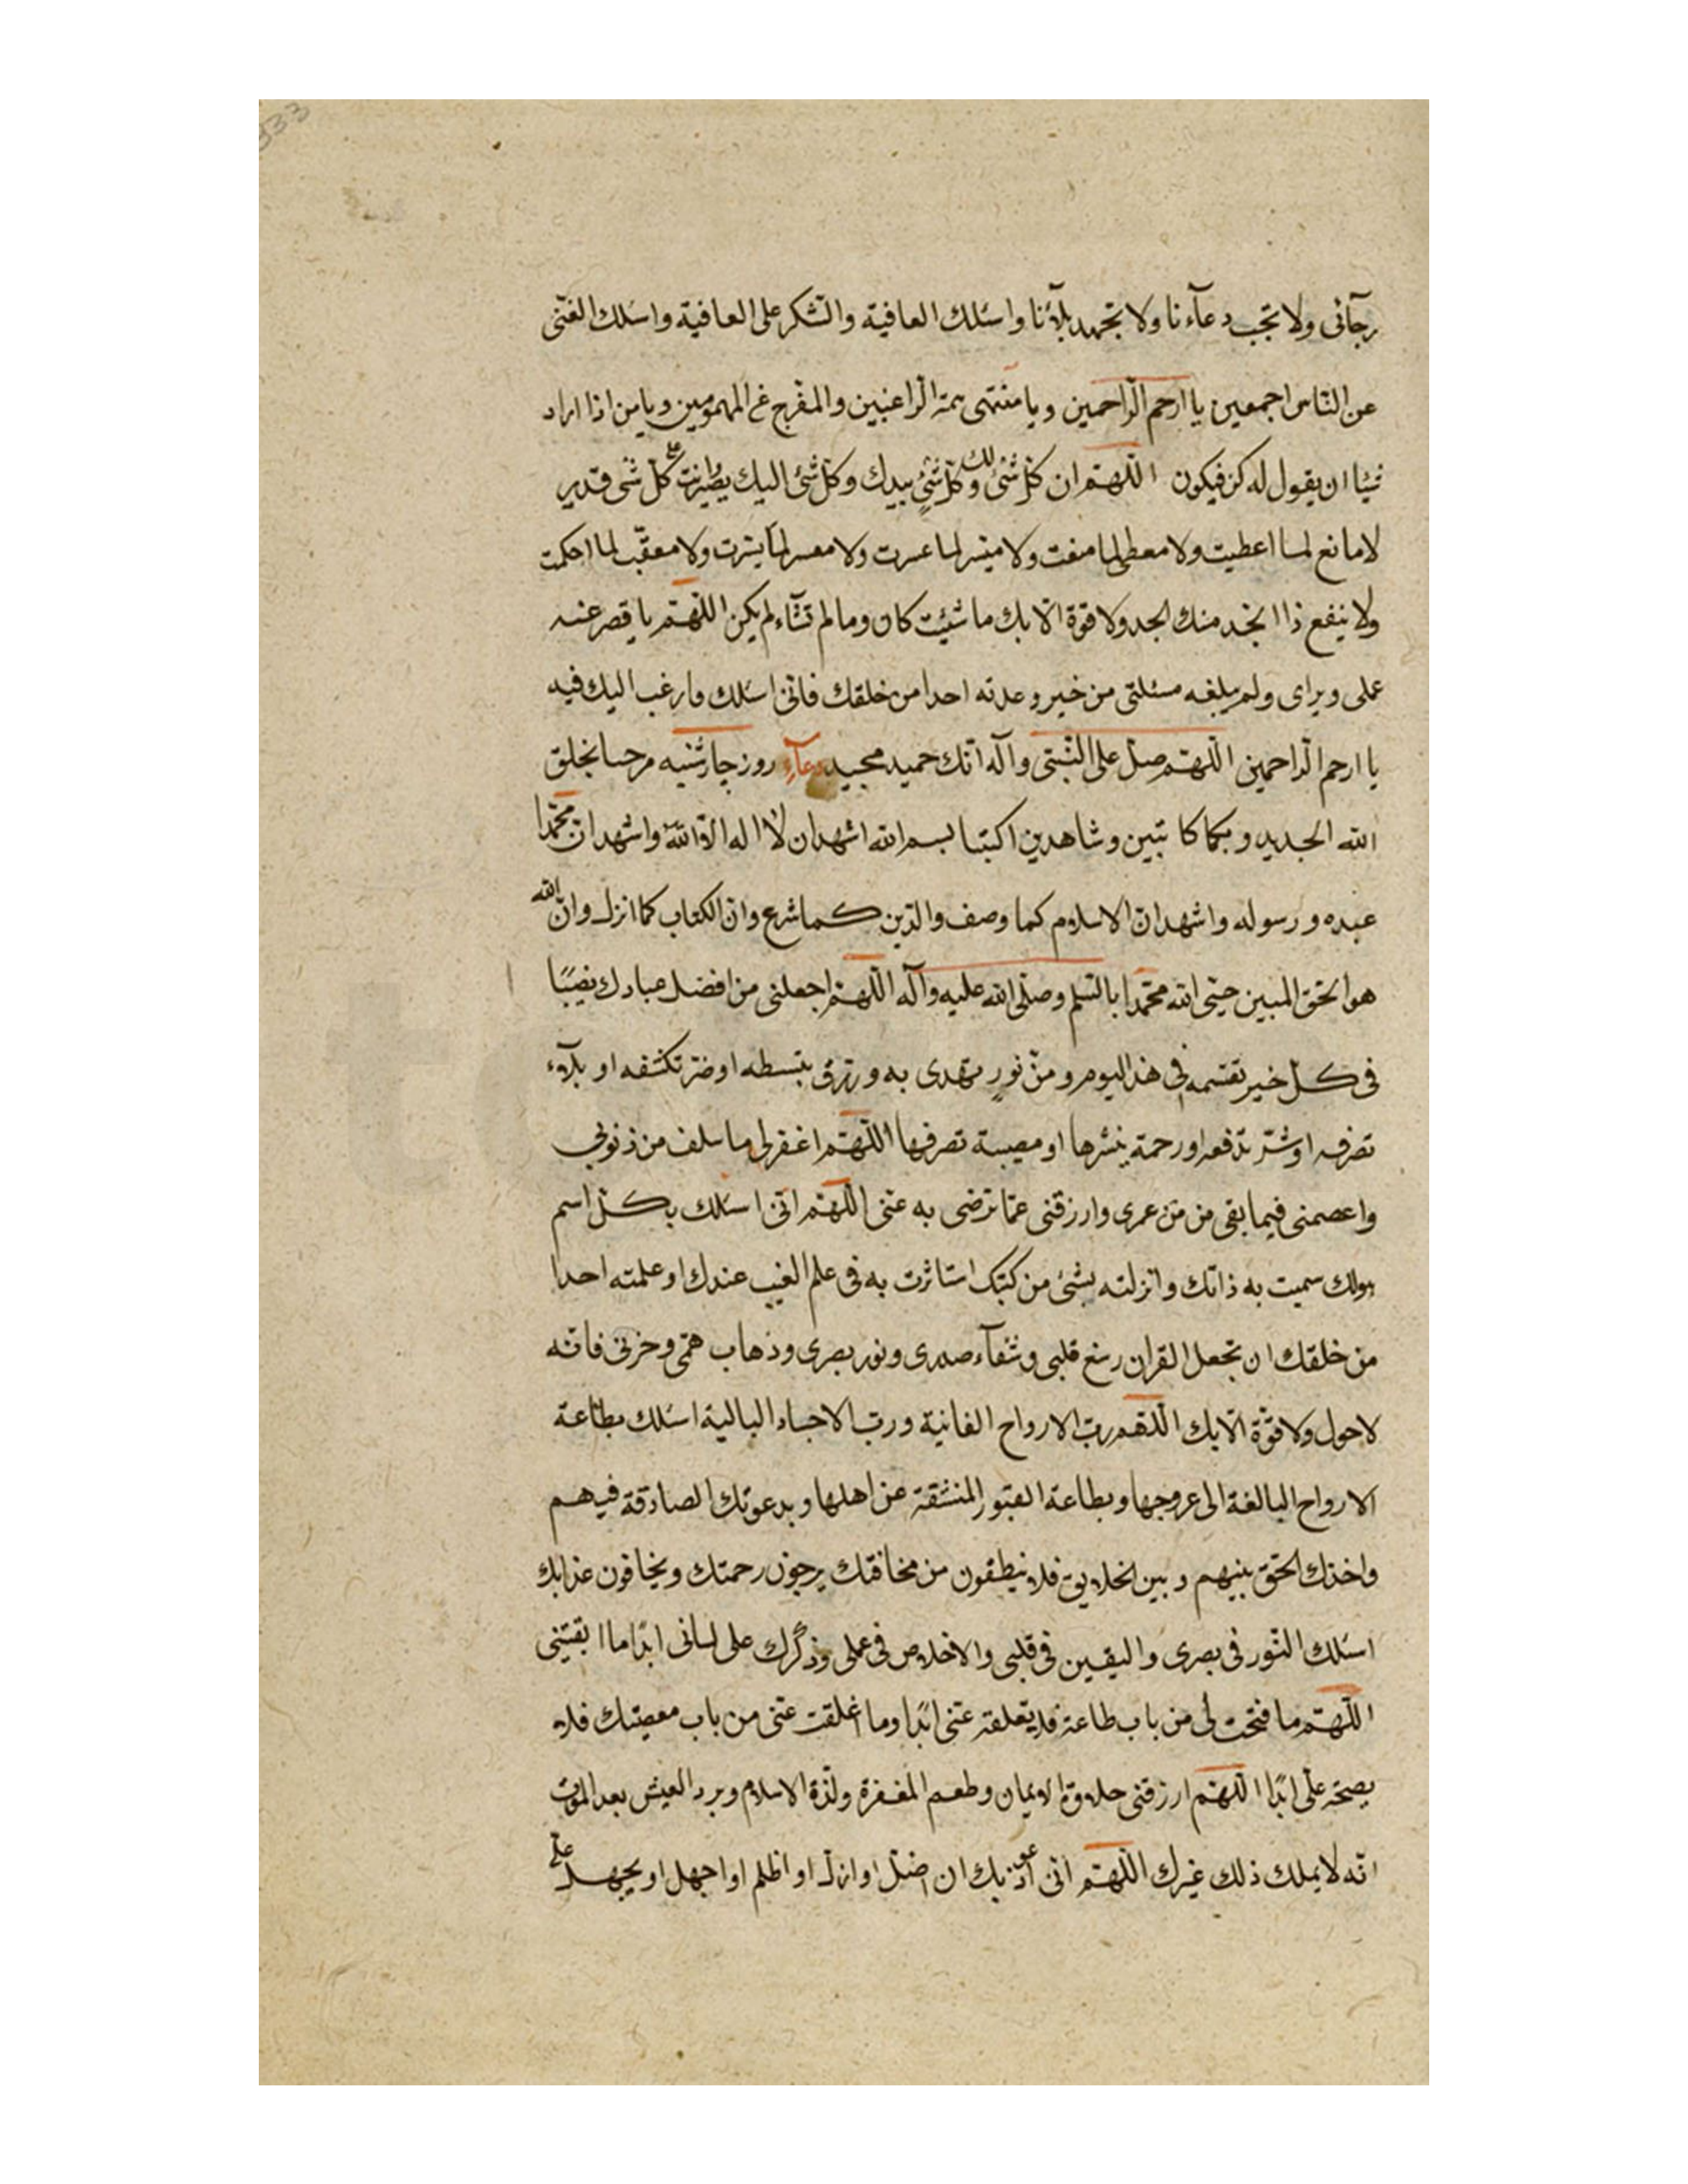 رجآئی ولا تجب دعآءنا ولا تجهد بلآئنا واسئلك العافية والشكر على العافية واسئلك الغنى
عن الناس اجمعين يا ارحم الراحمين ويا منتهى همة الراغبين والمفرج عن المهمومين ويا من اذا اراد
شيئا ان يقول له كن فيكون اللّهم ان كل شئ لك وكل شئ بيدك وكل شئ اليك يصير وانت على كل شی قدير
لا مانع لما اعطيت ولا معطی لما منعت ولا ميسر لما عسرت ولا معسر لما يسّرت ولا معقّب لما احكمت
ولا ينفع ذا الجد منك الجد ولا قوة الا بك ما شئيت كان وما لم تشآء لم يكن اللّهم يا قصر عنه
عملی ويرای ولم يبلغه مسئلتی من خير وعدته احدا من خلقك فانی اسئلك وارغب اليك فيه
يا ارحم الراحمين اللّهم صل على النّبی وآله انّك حميد مجيد دعآءِ روز چارشنبه مرحبا بخلق
الله الجديد وبكما كاتبين وشاهدين اكتبا بسم الله اشهد ان لا اله الا الله واشهد انّ محمّدا
عبده ورسوله واشهد انّ الاسلام كما وصف والدّين كما شرع وانّ الكتاب كما انزل وانّ الله
هو الحق المبين حيّی الله محمّدا بالسّلم وصلّى الله عليه وآله اللّهم اجعلنی من افضل عبادك نصيبًا
فی كل خير تقسمه فی هذا اليوم ومن نورٍ تهدی به ورزق تبسطه او ضرّ تكشفه او بلآءٍ
تصرفه او شرّ تدفعه او رحمة ينشرها او مصيبة تصرفها اللّهم اغفر لی ما سلف من ذنوبی
واعصمنی فيما بقی من من عمری وارزقنی عمّا ترضى به عنّی اللّهم انّی اسئلك بكلّ اسم
هولك سميت به ذاتك وانزلته بشئ من كتبك استاثرت به فی علم الغيب عندك او علمته احدا
من خلقك ان تجعل القران ربيع قلبی وشفآء صدری ونور بصری وذهاب همّی وحزنی فانّه
لا حول ولا قوّة الا بك اللّهم ربّ الارواح الفانية وربّ الاجساد البالية اسئلك بطاعة
الارواح البالغة الى عروجها وبطاعة القبور المنشقة عن اهلها وبدعوتك الصادقة فيهم
واخذك الحق بينهم وبين الخلايق فلا ينطقون من مخافتك يرجون رحمتك ويخافون عذابك
اسئلك النّور فی بصری واليقين فی قلبی والاخلاص فی عملی وذكرك على لسانی ابدًا ما ابقيتنی
اللّهم ما فتحت لی من باب طاعة فلا تغلقه عنّی ابدًا وما اغلقت عنّی من باب معصيتك فلا
يفتحه علیّ ابدًا اللّهم ارزقنی حلاوة الايمان وطعم المغفرة ولذّة الاسلام وبرد العيش بعد الموت
انّه لا يملك ذلك غيرك اللّهم انّی اعوذ بك ان اضلّ او ازلّ او اظلم او اجهل او يجهل علیّ